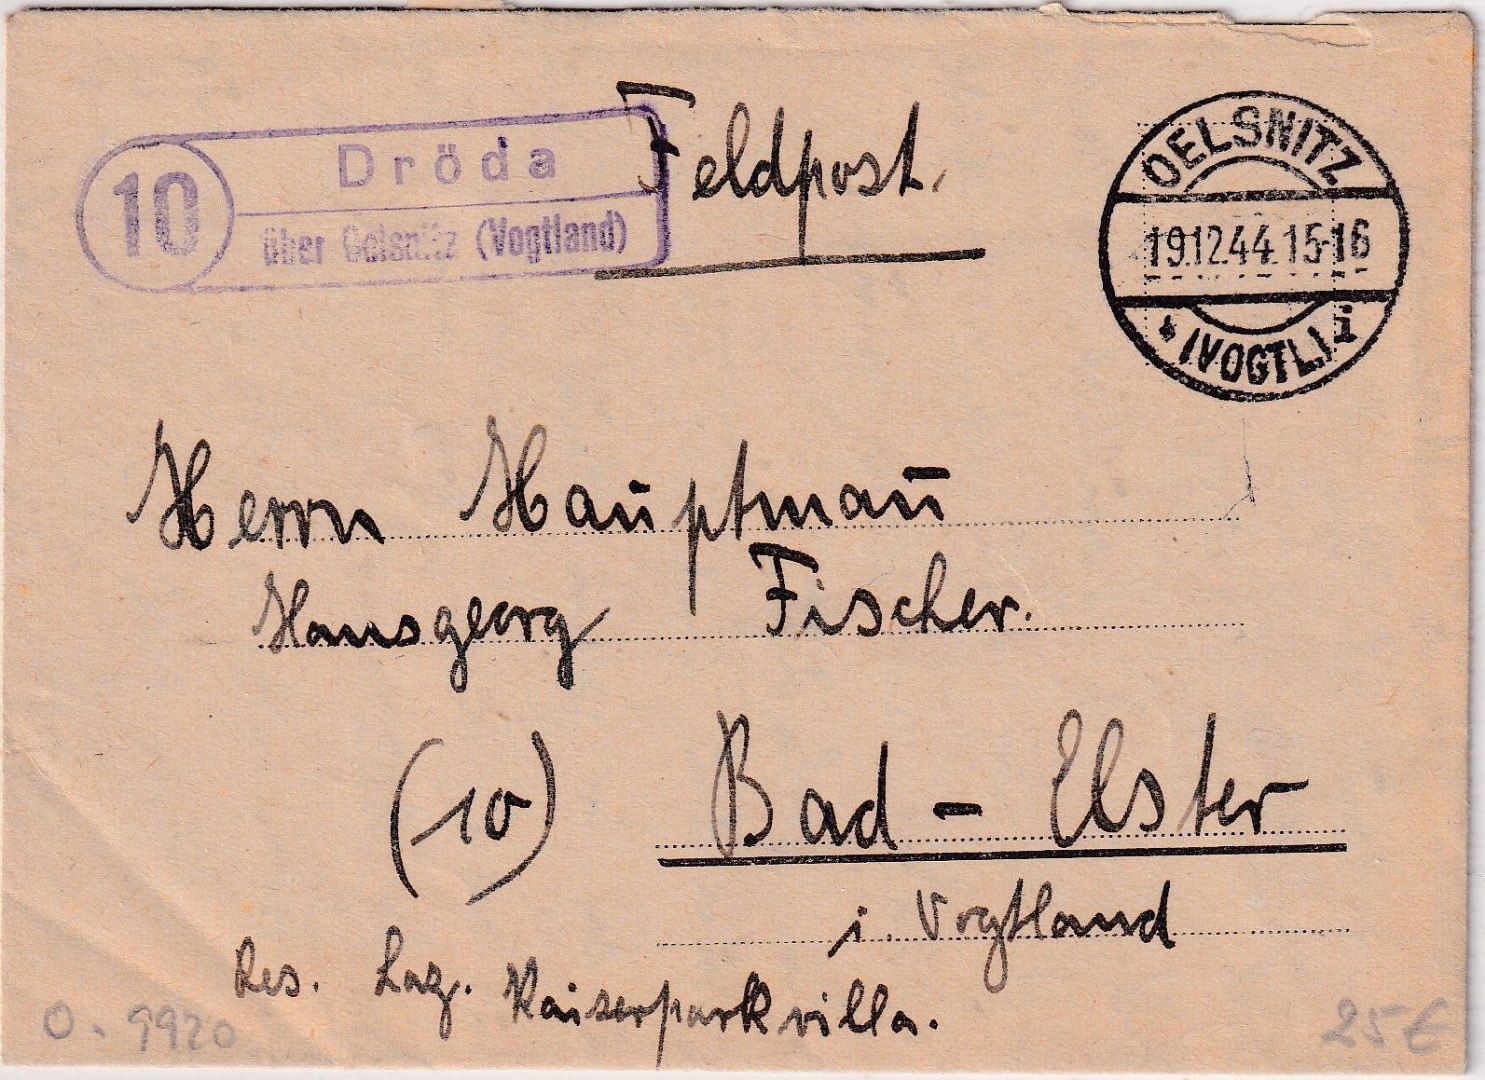 10
Dröda
über Oelsnitz (Vogtland)
Feldpost.
OELSNITZ
19.12.44.15-16
(VOGTL.) i
Herrn Hauptmañ
Hansgeorg Fischer.
(10) Bad-Elster
i. Vogtland
Res. Laz. Kaiserparkvilla.
O-9920
25€